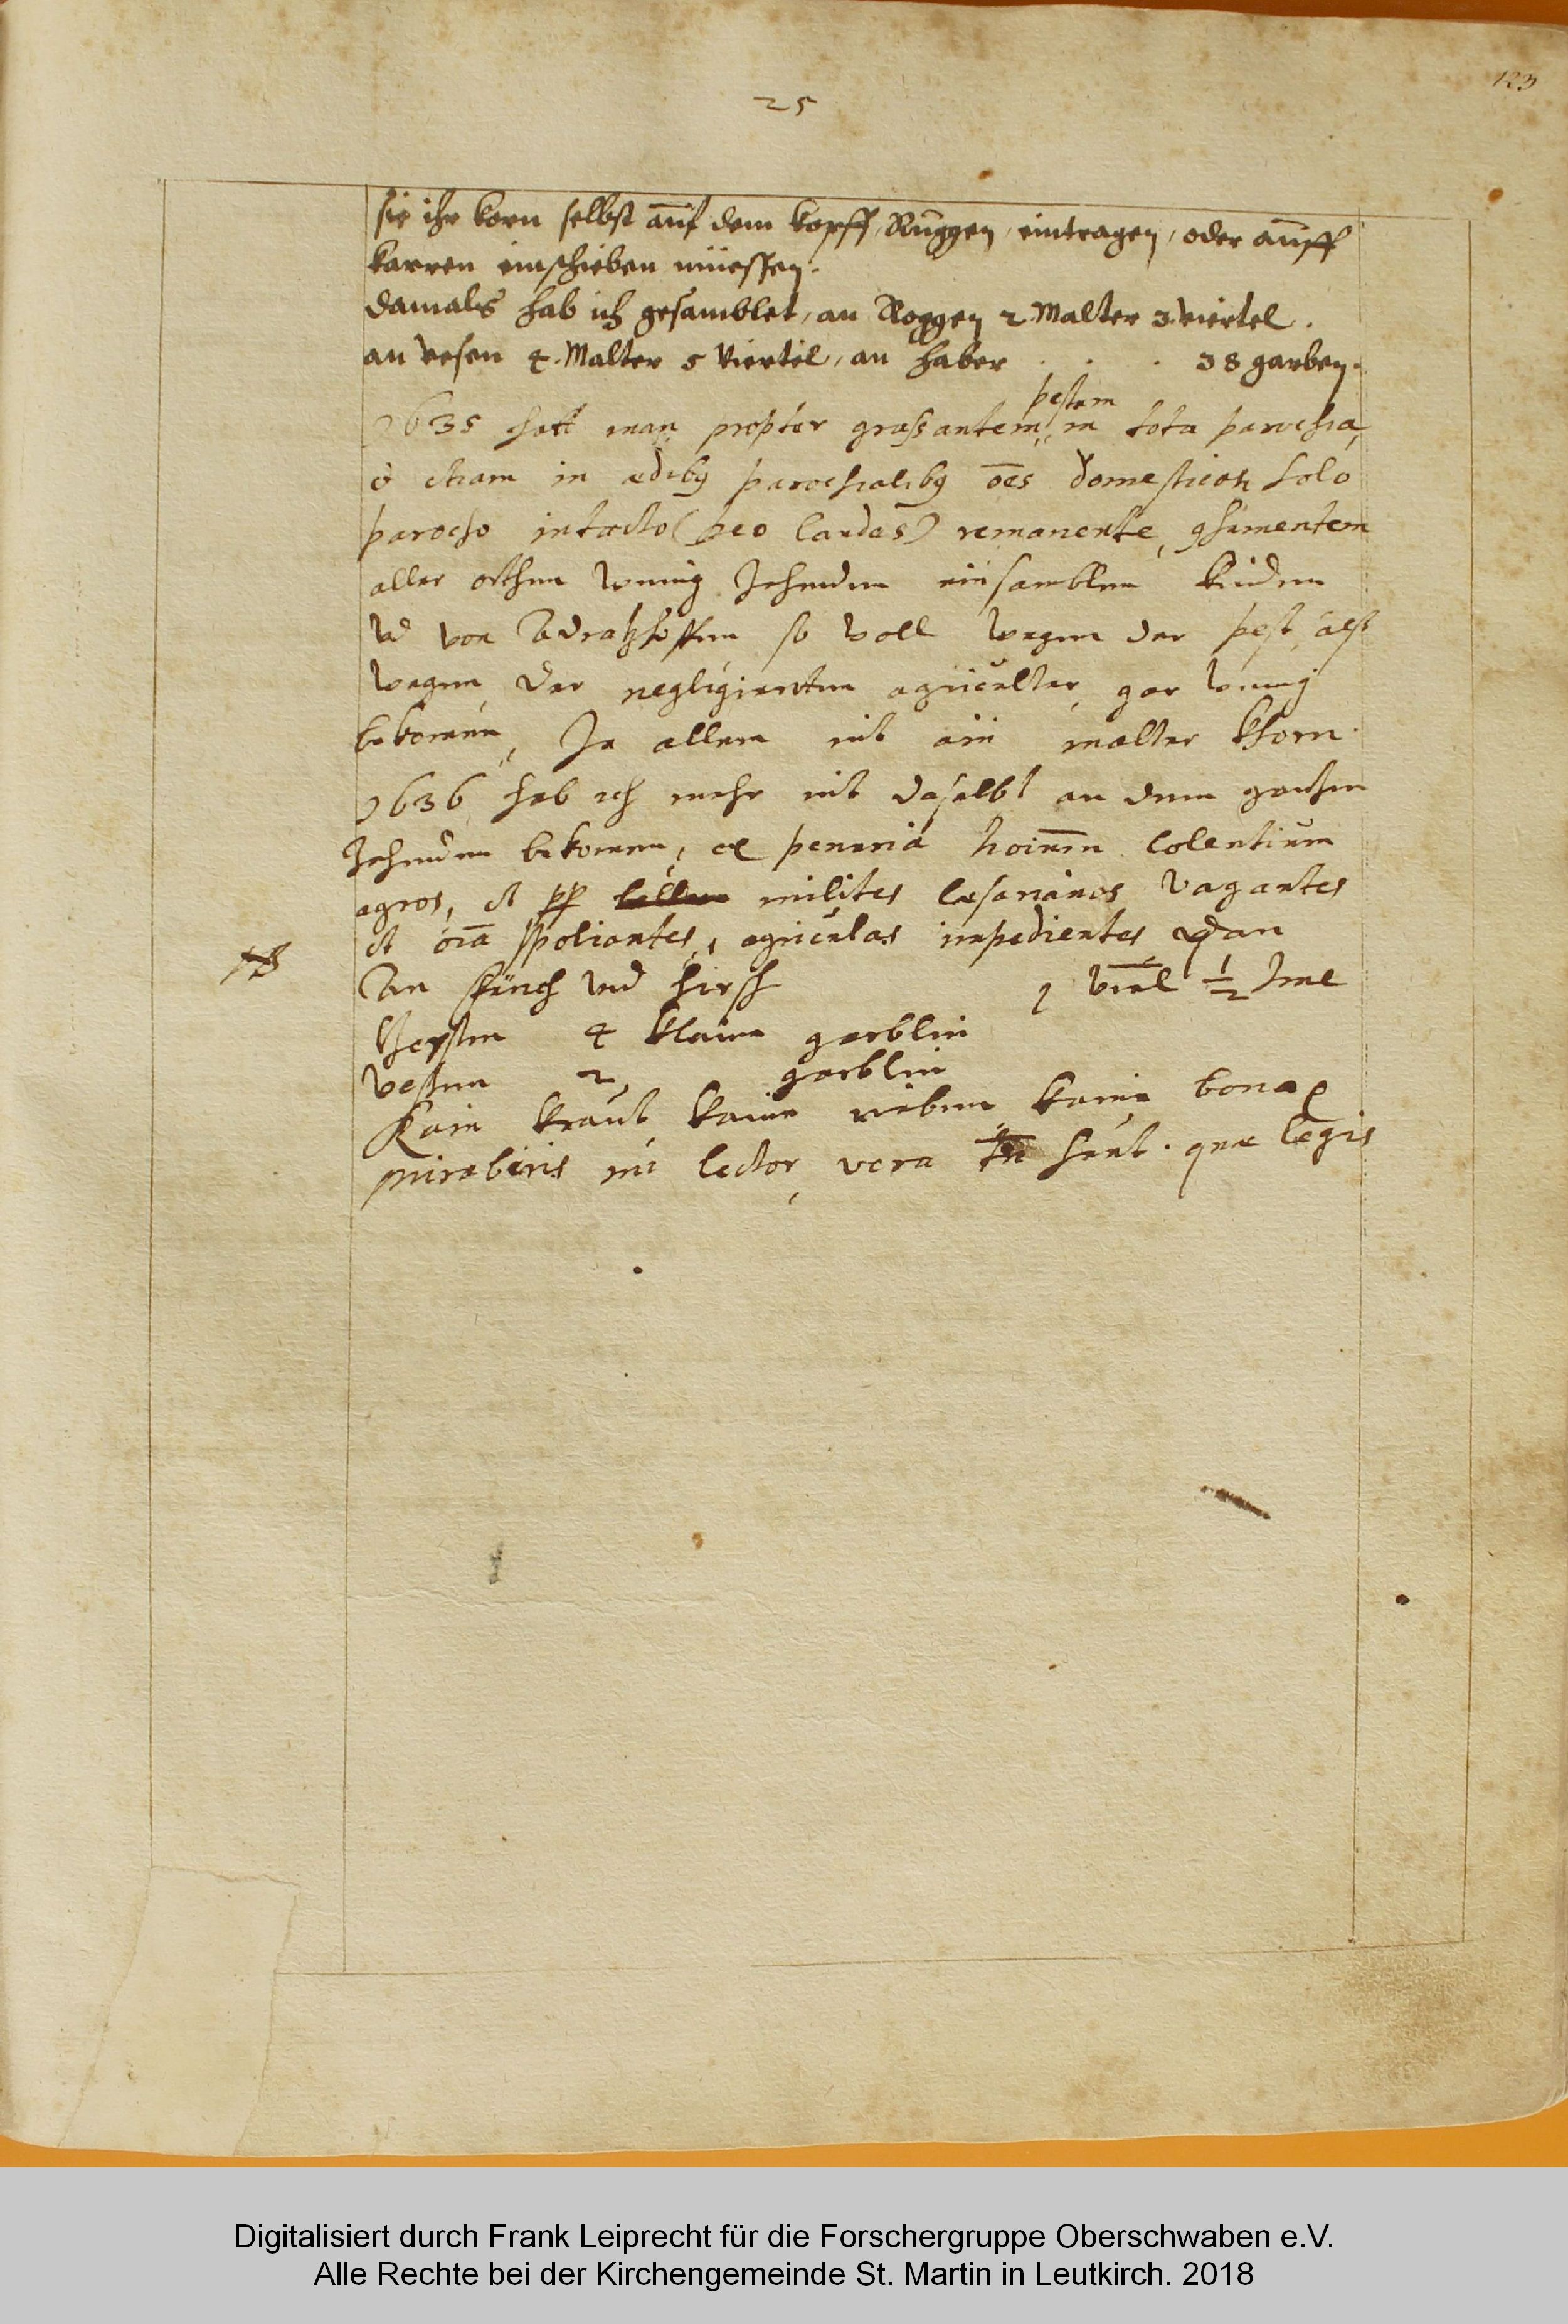 123
25
sie ihr korn selbst auf dem kopff, Ruggen, eintragen, oder auff
karren einschieben müessen.
damals hab ich gesamblet, an Roggen 2. Malter 3. viertel.
an vesen 4. Malter 5 viertel, an haber . . . 38 garben.
pestem
1635 hatt man propter grassantem in tota parochia,
& etiam in ædibq parochialibq oēs domesticos solo
parocho intacto (Deo laudes) remanente, 9sumentem
aller orthen wenig Zehenden einsamblen kinden
von Adratzhoffen so woll wegen der pest, alß
wegen der negligierten agricultur gar wenig
bekomen, In allem nit ain malter khorn.
1636 hab ich mehr nit daselbst an dem gantzen
Zehenden bekomen, ex penuria hoīum colentium
agros, et pp milites cæsarianos vagantes
et oīa spoliantes, agricolas impedientes
NB
An fench und hirsch 1 viertl ½ Ime
Gersten 4 klaine garblin
vesen 2, garblin
Kain kraut kaine rieben kaine bona
miraberis mi lector, vera tn sunt. quæ legis
Digitalisiert durch Frank Leiprecht für die Forschergruppe Oberschwaben e.V.
Alle Rechte bei der Kirchengemeinde St. Martin in Leutkirch. 2018